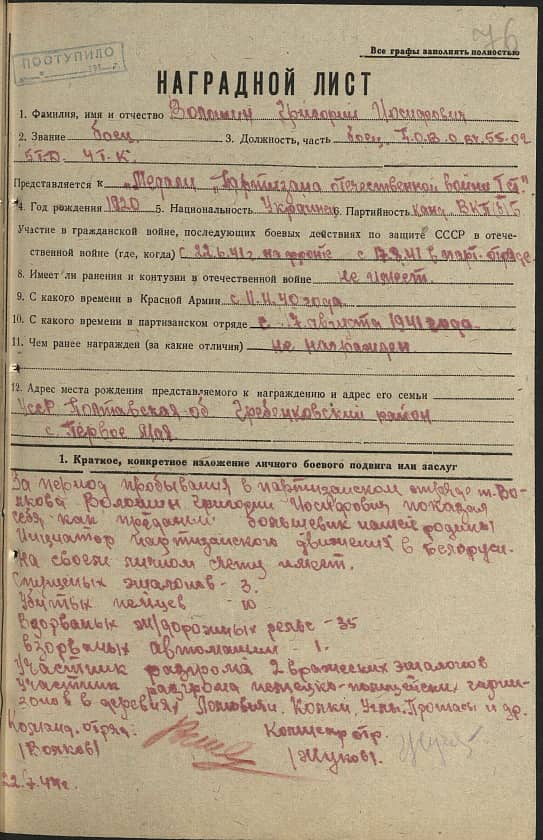 76
Все графы заполнять полностью
ПОСТУПИЛО
НАГРАДНОЙ ЛИСТ
1. Фамилия, имя и отчество Волошин Григорий Иосифович
2. Звание боец 3. Должность, часть боец П.О.В.О.Вг. 55-02
5Т.D- 4Т.К.
Представляется к „Медали „Партизана отечественной войны I ст."
4. Год рождения 1920 5. Национальность Украинец 6. Партийность канд. ВКП(б)
Участие в гражданской войне, последующих боевых действиях по защите СССР в отече-
ственной войне (где, когда) с 22.6.41г на фронте с 17.8.41 в парт-отряде
8. Имеет ли ранения и контузии в отечественной войне не имеет.
9. С какого времени в Красной Армии с 11.11.40 года
10. С какого времени в партизанском отряде с 17 августа 1941 года
11. Чем ранее награжден (за какие отличия) не награжден
12. Адрес места рождения представляемого к награждению и адрес его семьи
УССР Полтавская об Гребенковский район
с. Первое Мая
1. Краткое, конкретное изложение личного боевого подвига или заслуг
За период пребывания в партизанском отряде т. Во-
лкова Волошин Григорий Иосифович показал
себя как преданый большевик нашей родины
Инициатор партизанского движения в Белоруси.
На своем личном счету имеет.
Спущеных эшалонов - 3.
Убитых немцев 10
Взорваных ж/дорожных рельс - 35
Взорваных автомашин - 1.
Участник разгрома 2 вражеских эшалонов
Участник разгрома немецко-полицейских гарни-
зонов в деревнях Копки, Углы, Протасы и др.
Команд. отряда: Комисар отр.
/Волков/ /Жуков/
22.7.44г.